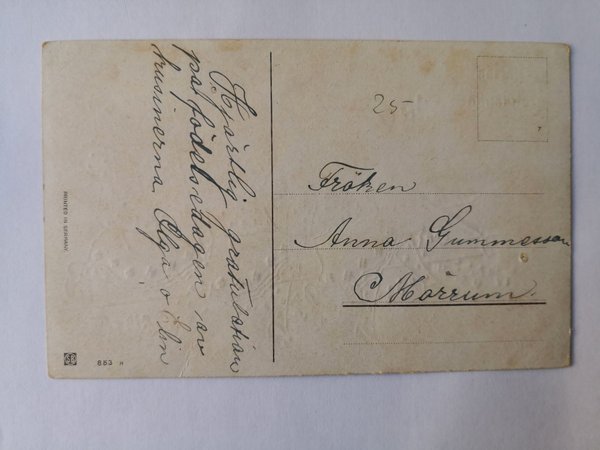 Hjärtlig gratulation
på födelsedagen av
kusinerna Olga o Elin
25-
Fröken
Anna Gummesson
Mörrum.
PRINTED IN GERMANY
853 H